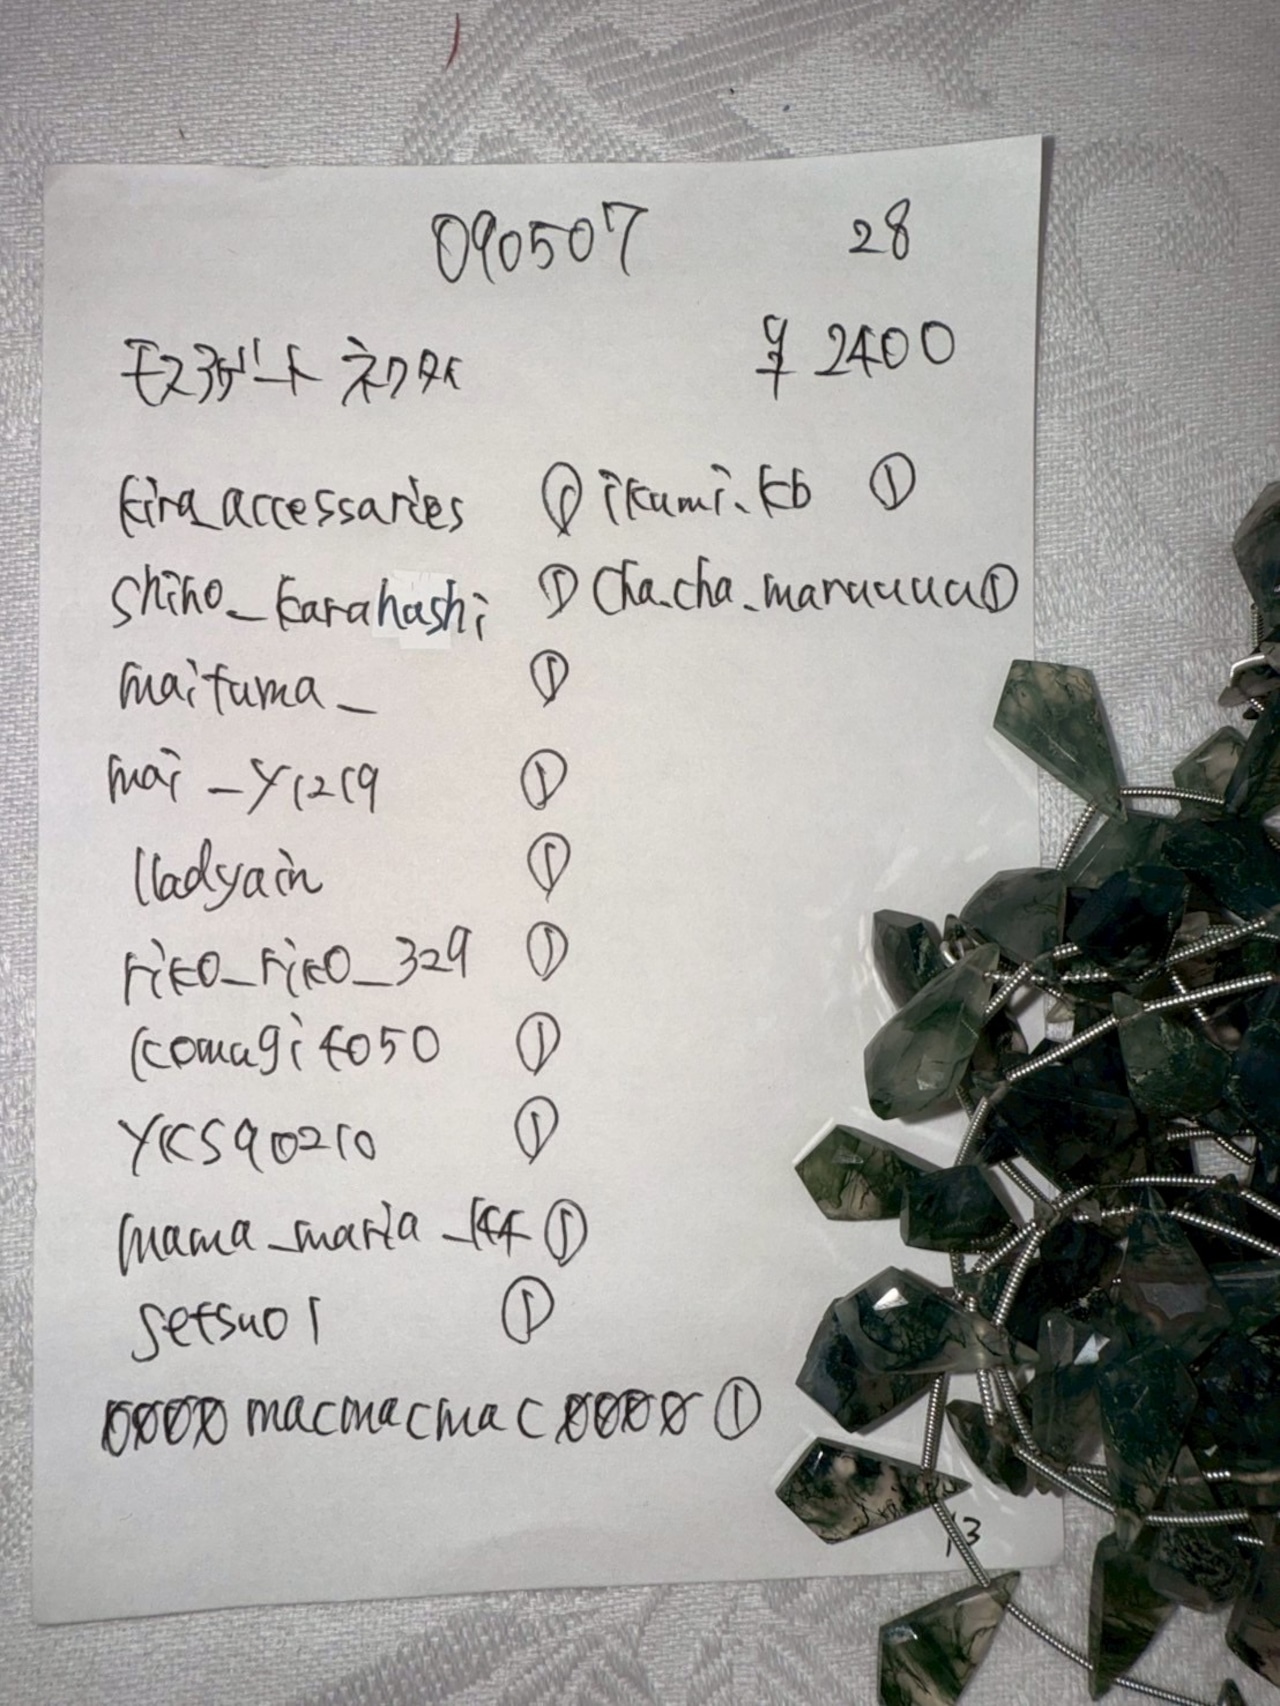 090507 28
モスアゲート ネクタイ ¥2400
kira_accessaries ① ikumi.kb ①
shiho_karahashi ① cha.cha_maruuuu ①
maituma_ ①
mai_y1219 ①
lladyain ①
riko_riko_329 ①
komagi4050 ①
YKS90210 ①
mama_maria_144 ①
setsuo1 ①
0000macmacmac0000 ①
13